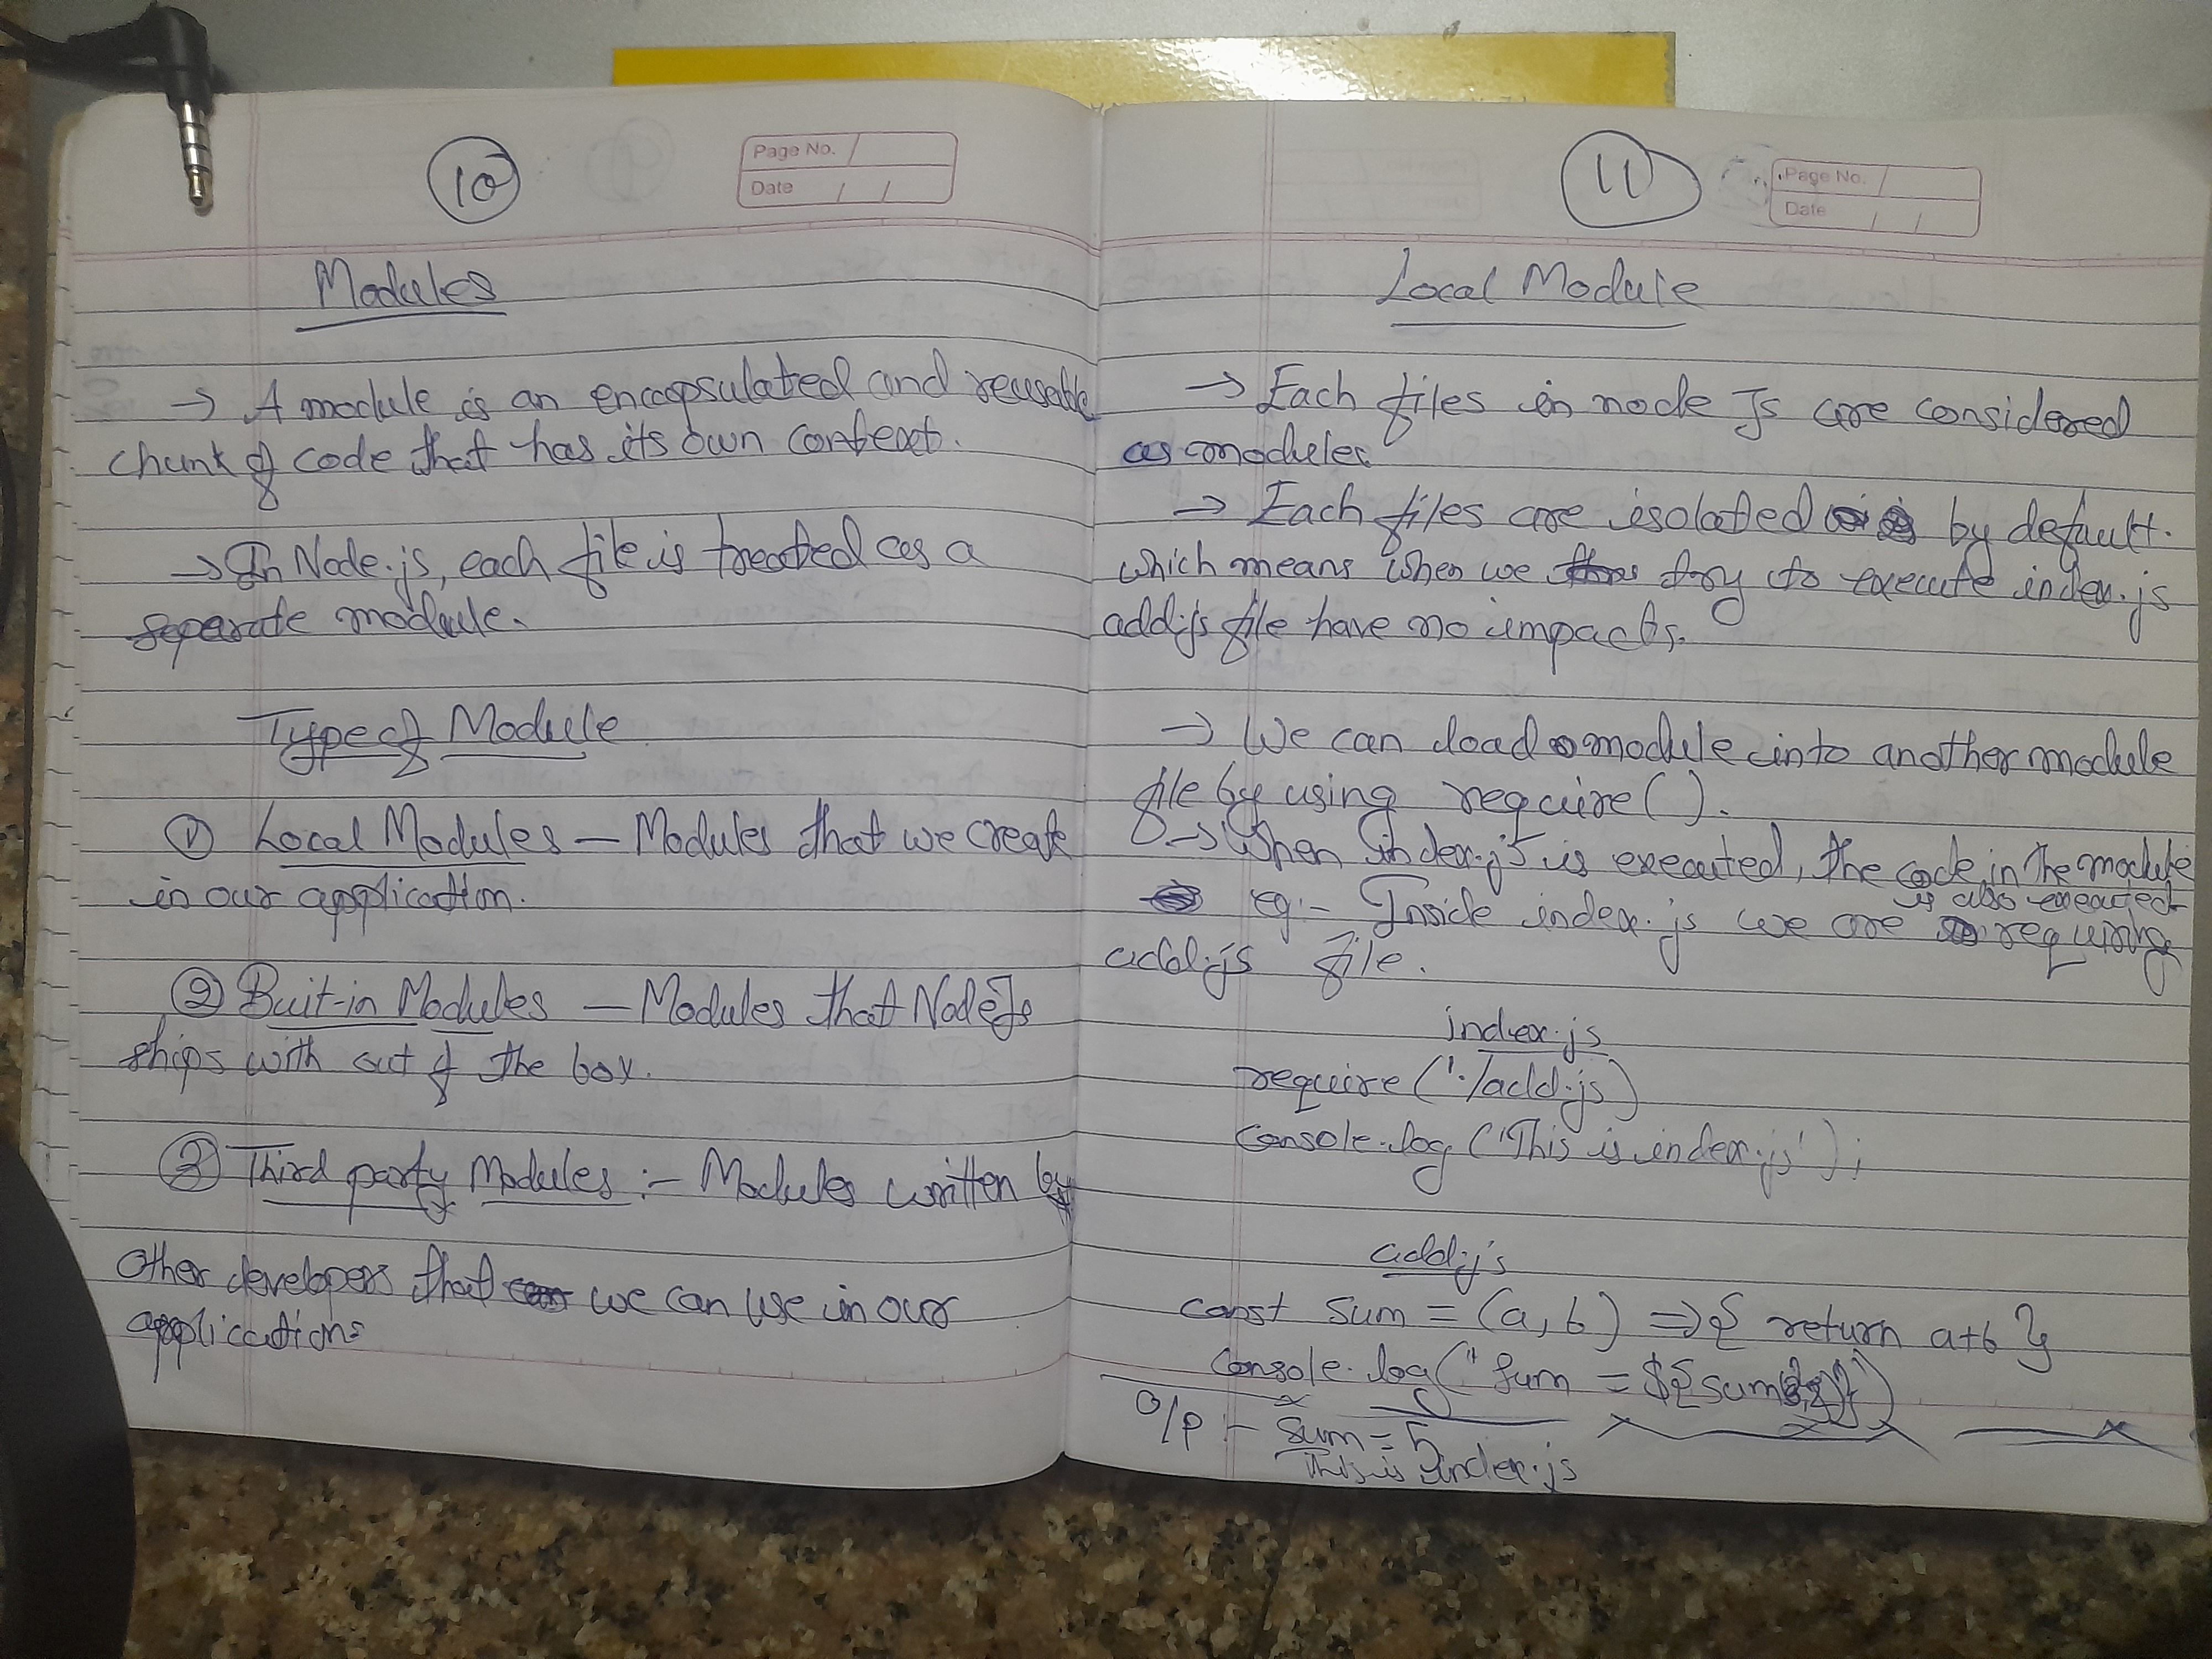 10
Page No.
Date / /
Modules
→ A module is an encapsulated and reusable
chunk of code that has its own context.
→ In Node.js, each file is treated as a
seperate module.
Type of Module
① Local Modules — Modules that we create
in our application.
② Buit-in Modules — Modules that NodeJs
ships with out of the box.
③ Third party Modules :- Modules written by
other developers that we can use in our
applications
11
Page No.
Date / /
Local Module
→ Each files in node Js are considered
as modules
→ Each files are isolated by default.
which means when we try to execute index.js
add.js file have no impacts.
→ We can load module into another module
file by using require().
→ When index.js is executed, the code in the module
is also executed
eg:- Inside index.js we are requiring
add.js file.
index.js
require('./add.js)
console.log('This is index.js');
add.js
const sum = (a, b) => { return a+b }
console.log(" Sum = ${sum
O/P :- Sum = 5
This is index.js